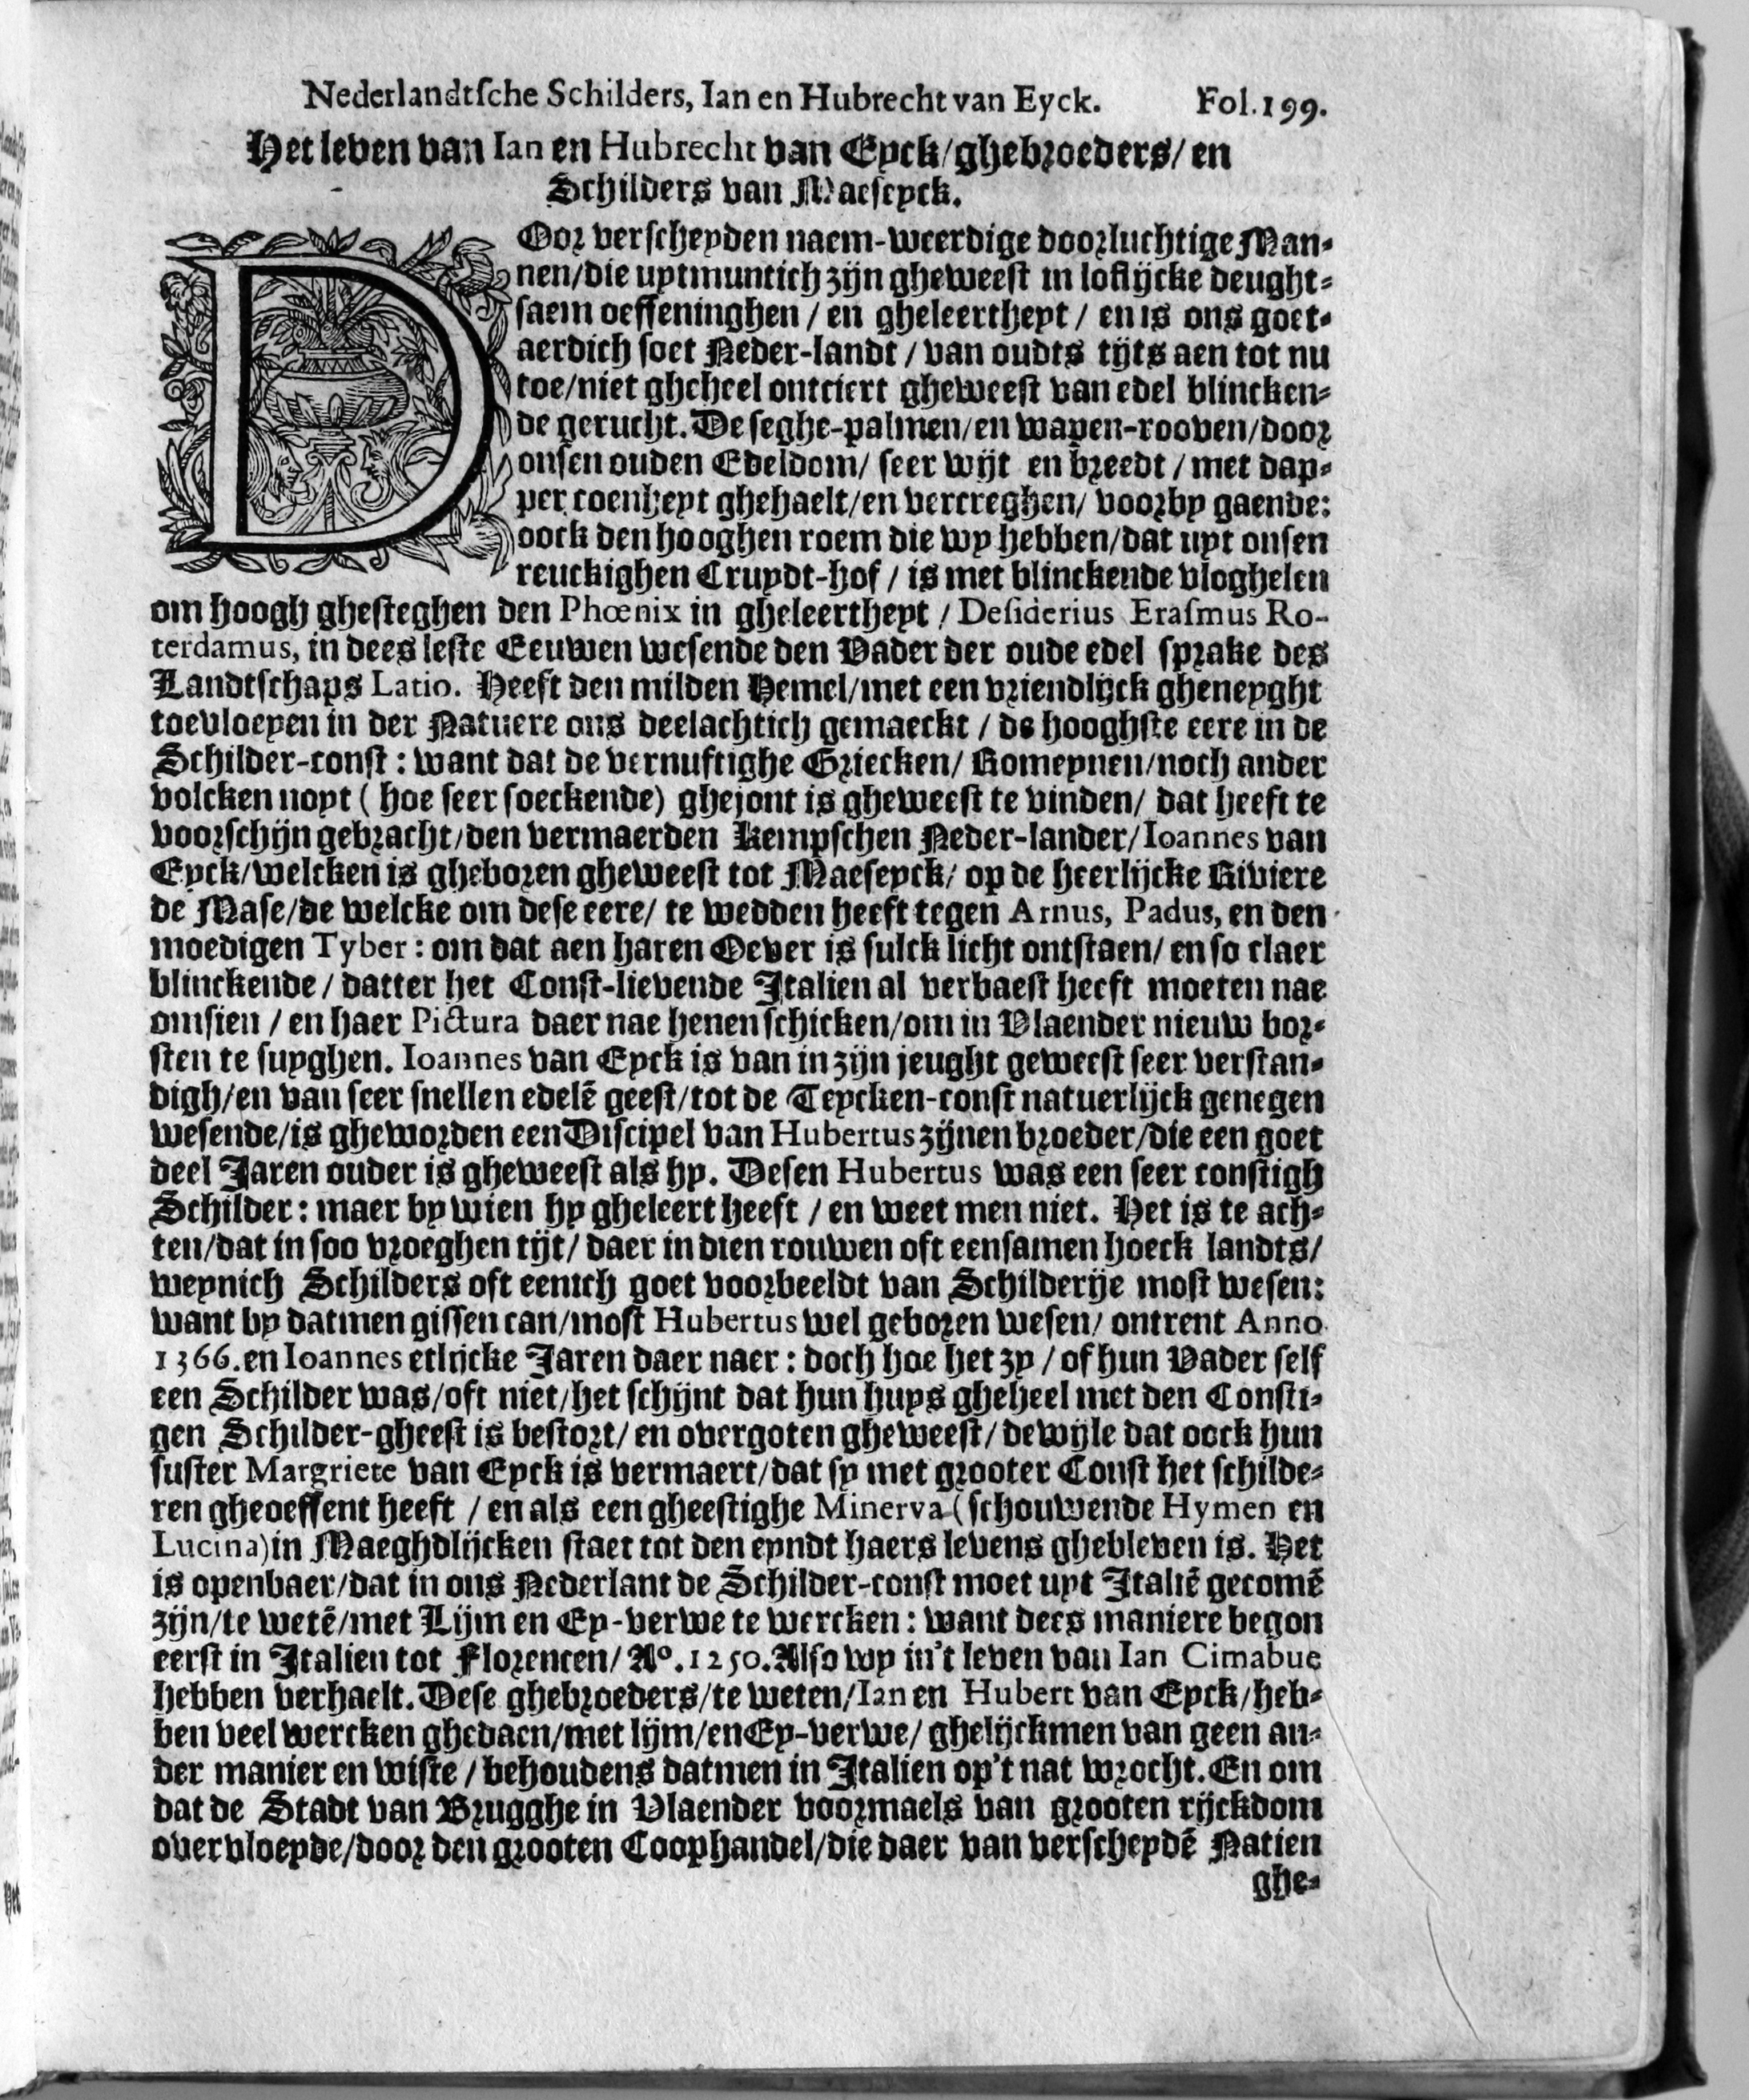 Nederlandtsche Schilders, Ian en Hubrecht van Eyck. Fol. 199.
Het leven van Ian en Hubrecht van Eyck/ ghebroeders/ en
Schilders van Maeseyck.
DOor verscheyden naem-weerdige doorluchtige Man-
nen/ die uytmuntich zijn gheweest in loflijcke deught-
saem oeffeninghen / en gheleertheyt / en is ons goet-
aerdich soet Neder-landt / van oudts tijts aen tot nu
toe/ niet gheheel ontciert gheweest van edel blincken-
de gerucht. De seghe-palmen/ en wapen-rooven/ door
onsen ouden Edeldom/ seer wijt en breedt / met dap-
per coenheyt ghehaelt/ en vercreghen/ voorby gaende:
oock den hooghen roem die wy hebben/ dat uyt onsen
reuckighen Cruydt-hof / is met blinckende vloghelen
om hoogh ghesteghen den Phœnix in gheleertheyt / Desiderius Erasmus Ro-
terdamus, in dees leste Eeuwen wesende den Vader der oude edel sprake des
Landtschaps Latio. Heeft den milden Hemel/ met een vriendlijck gheneyght
toevloeyen in der Natuere ons deelachtich gemaeckt / de hooghste eere in de
Schilder-const : want dat de vernuftighe Griecken/ Romeynen/ noch ander
volcken noyt ( hoe seer soeckende) ghejont is gheweest te vinden/ dat heeft te
voorschijn gebracht/ den vermaerden Kempschen Neder-lander/ Ioannes van
Eyck/ welcken is gheboren gheweest tot Maeseyck/ op de heerlijcke Riviere
de Mase/ de welcke om dese eere/ te wedden heeft tegen Arnus, Padus, en den
moedigen Tyber : om dat aen haren Oever is sulck licht ontstaen/ en so claer
blinckende / datter het Const-lievende Italien al verbaest heeft moeten nae
omsien / en haer Pictura daer nae henen schicken/ om in Vlaender nieuw bor-
sten te suyghen. Ioannes van Eyck is van in zijn jeught geweest seer verstan-
digh/ en van seer snellen edelē geest/ tot de Teycken-const natuerlijck genegen
wesende/ is gheworden een Discipel van Hubertus zijnen broeder/ die een goet
deel Jaren ouder is gheweest als hy. Desen Hubertus was een seer constigh
Schilder : maer by wien hy gheleert heeft / en weet men niet. Het is te ach-
ten/ dat in soo vroeghen tijt/ daer in dien rouwen oft eensamen hoeck landts/
weynich Schilders oft eenich goet voorbeeldt van Schilderije most wesen:
want by datmen gissen can/ most Hubertus wel geboren wesen/ ontrent Anno
1366. en Ioannes etlijcke Jaren daer naer : doch hoe het zy / of hun Vader self
een Schilder was/ oft niet/ het schijnt dat hun huys gheheel met den Consti-
gen Schilder-gheest is bestort/ en overgoten gheweest/ dewijle dat oock hun
suster Margriete van Eyck is vermaert/ dat sy met grooter Const het schilde-
ren gheoeffent heeft / en als een gheestighe Minerva (schouwende Hymen en
Lucina) in Maeghdlijcken staet tot den eyndt haers levens ghebleven is. Het
is openbaer/ dat in ons Nederlant de Schilder-const moet uyt Italiē gecomē
zijn/ te wetē/ met Lijm en Ey-verwe te wercken : want dees maniere begon
eerst in Italien tot Florencen/ Aº. 1250. Also wy in't leven van Ian Cimabue
hebben verhaelt. Dese ghebroeders/ te weten/ Ian en Hubert van Eyck/ heb-
ben veel wercken ghedaen/ met lijm/ en Ey-verwe/ ghelijckmen van geen an-
der manier en wiste / behoudens datmen in Italien op't nat wrocht. En om
dat de Stadt van Brugghe in Vlaender voormaels van grooten rijckdom
overvloeyde/ door den grooten Coophandel/ die daer van verscheydē Natien
ghe-